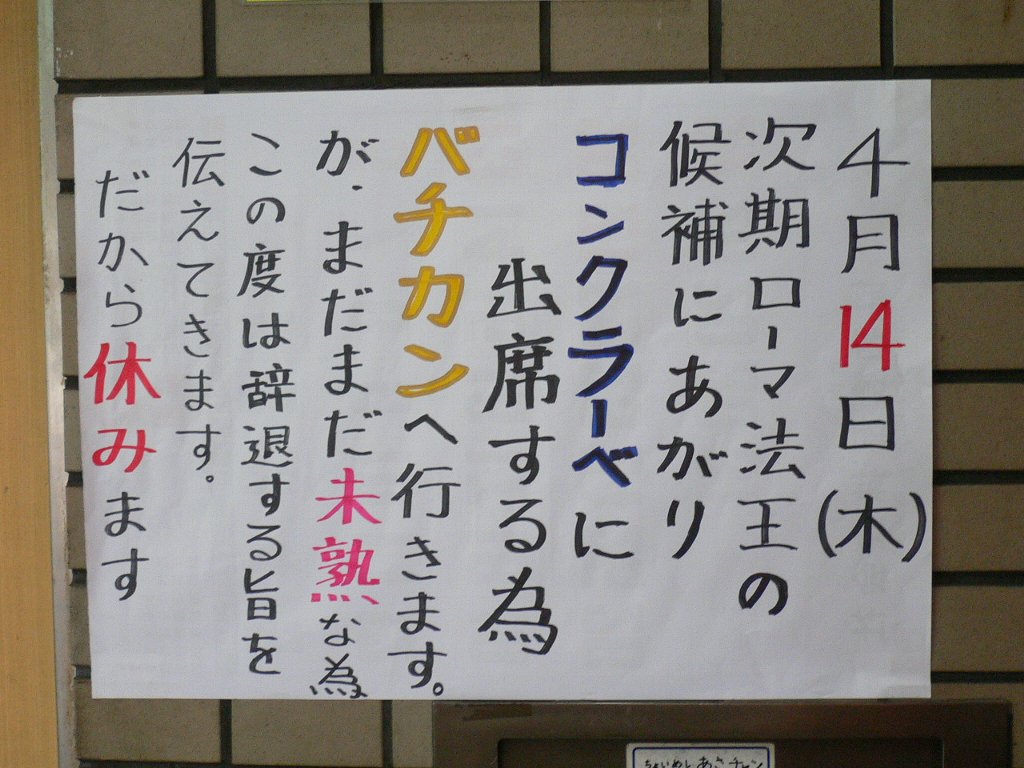 4月14日(木)
次期ローマ法王の
候補にあがり
コンクラーベに
出席する為
バチカンへ行きます。
が、まだまだ未熟な為
この度は辞退する旨を
伝えてきます。
だから休みます